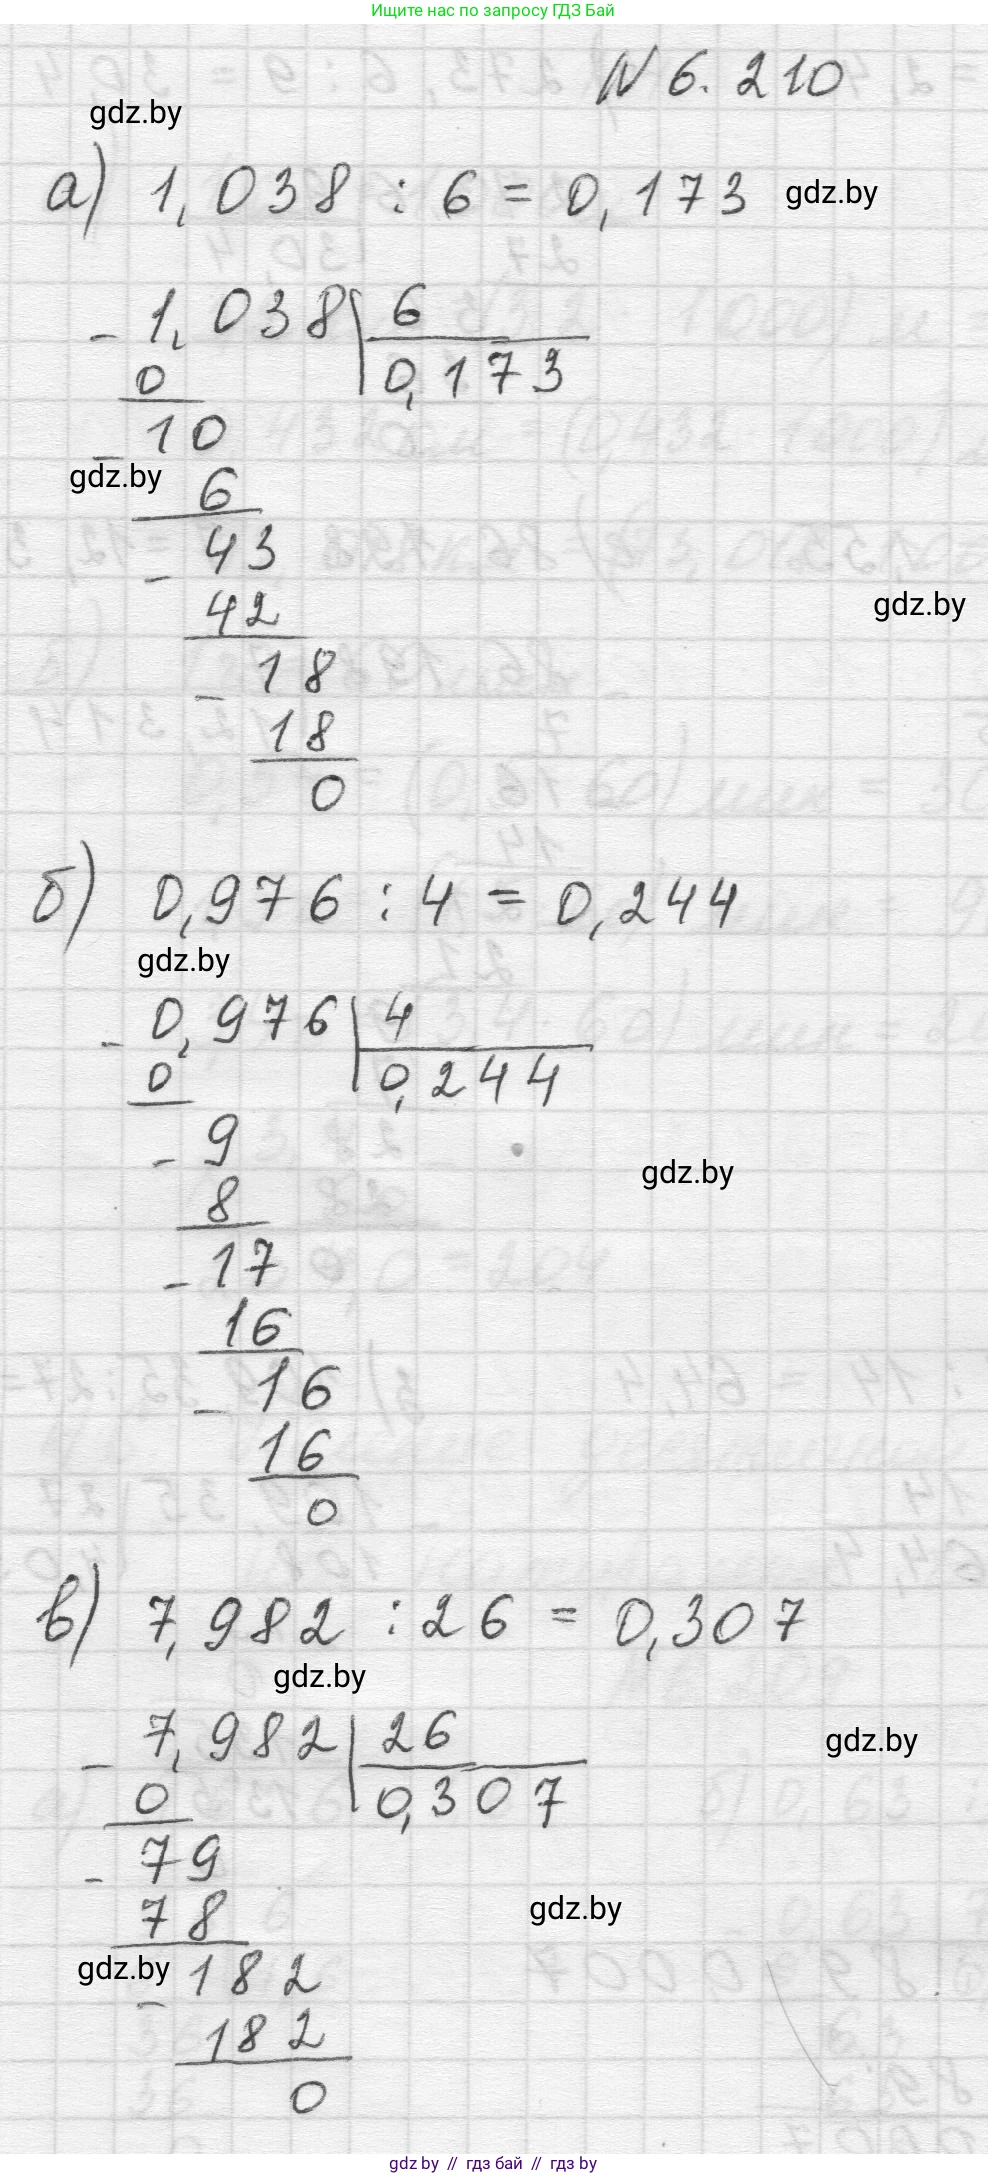 Ищите нас по запросу ГДЗ Бай
N 6.210
gdz.by
а) 1,038 : 6 = 0,173
gdz.by
- 1,038 | 6
0 0,173
- 10
gdz.by
6
- 43
gdz.by
42
- 18
18
0
б) 0,976 : 4 = 0,244
gdz.by
- 0,976 | 4
0 0,244
- 9
gdz.by
8
- 17
16
- 16
16
0
в) 7,982 : 26 = 0,307
gdz.by
- 7,982 | 26
gdz.by
0 0,307
- 79
78
gdz.by
gdz.by
- 182
182
0
gdz by // гдз бай // гдз by